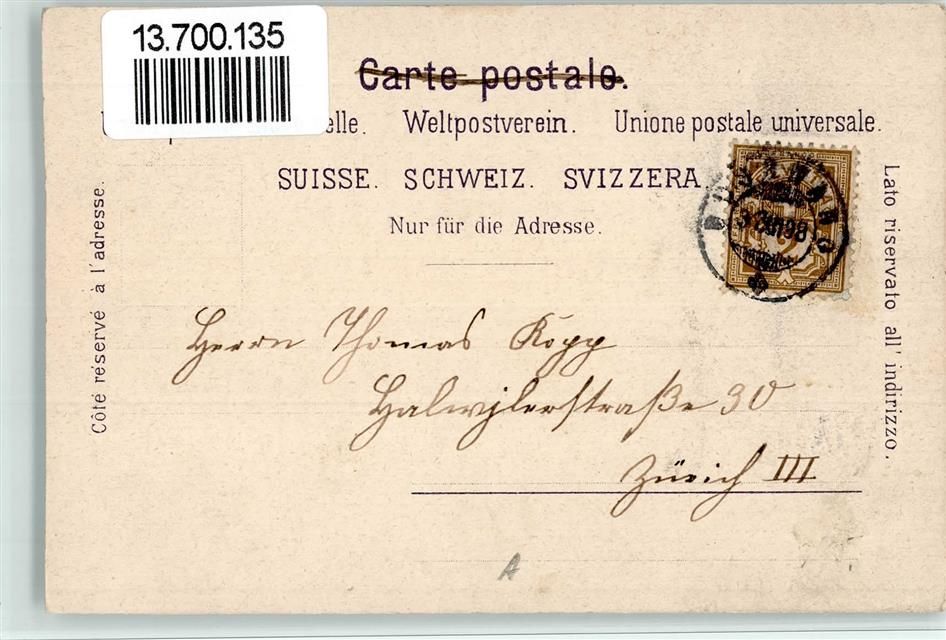 13.700.135
Carte postale.
elle. Weltpostverein. Unione postale universale.
SUISSE. SCHWEIZ. SVIZZERA.
Nur für die Adresse.
Côté réservé à l'adresse.
Lato riservato all' indirizzo.
98
Herrn Thomas Kopp
Halwylerstraße 30
Zürich III
A